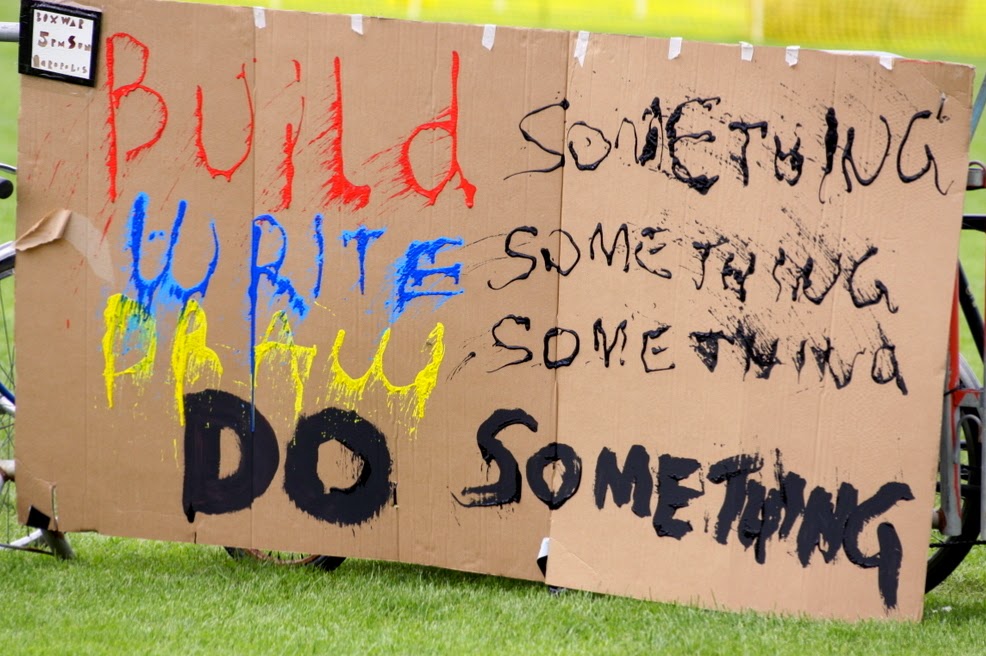 BOX WAR
5PM SUN
ACROPOLIS
BUild SOMETHING
WRITE SOMETHING
DRAW SOMETHING
DO SOMETHING